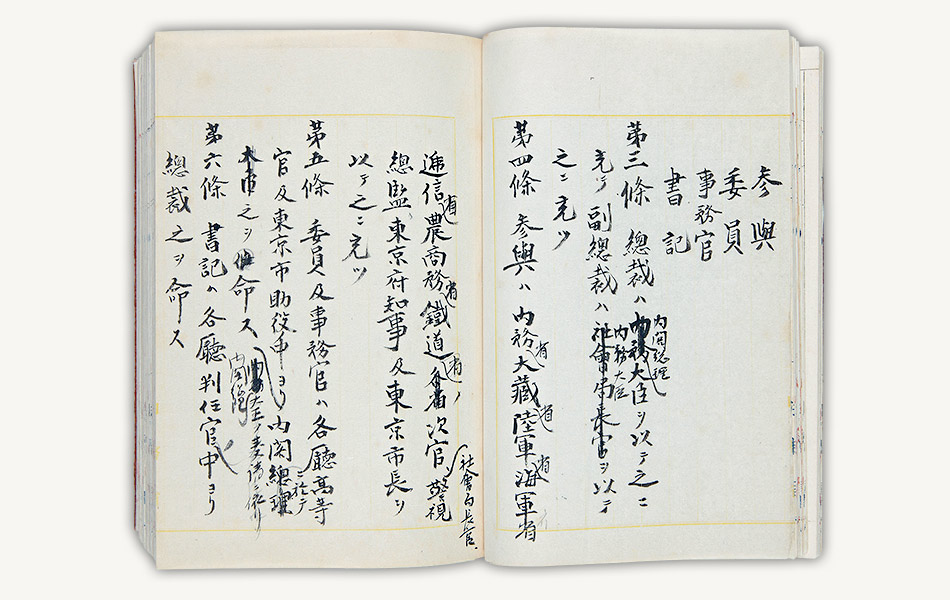 参與
委員
事務官
書記
第三條 總裁ハ内務大臣ヲ以テ之ニ
内閣総理
充テ副總裁ハ社會局長官ヲ以テ
内務大臣
之ニ充ツ
第四條 参與ハ内務大藏陸軍海軍省
省
省
省
逓信農商務鐵道各省次官警視
省
省
省ノ
社會局長官
總監東京府知事及東京市長ヲ
以テ之ニ充ツ
第五條 委員及事務官ハ各廳高等
官及東京市助役中ヨリ内閣總理
ニ於テ
大臣之ヲ命ス
内閣總
大臣ノ奏請ニ依リ
第六條 書記ハ各廳判任官中ヨリ
總裁之ヲ命ス